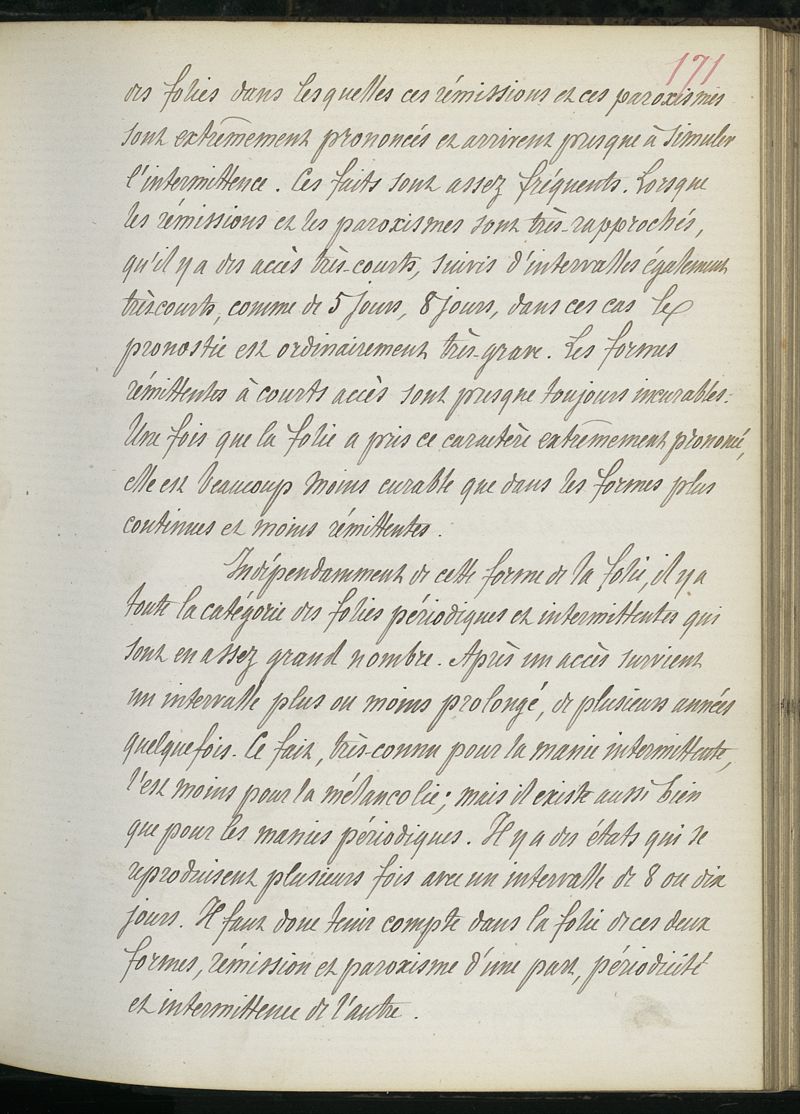 171
des folies dans lesquelles ces rémissions et ces paroxismes
sont extrêmement prononcés et arrivent presque à simuler
l'intermittence. Ces faits sont assez fréquents. Lorsque
les rémissions et les paroxismes sont très-rapprochés,
qu'il y a des accès très-courts, suivis d'intervalles également
très courts, comme de 5 jours, 8 jours, dans ces cas le
pronostic est ordinairement très-grave. Les formes
rémittentes à courts accès sont presque toujours incurables.
Une fois que la folie a pris ce caractère extrêmement prononcé,
elle est beaucoup moins curable que dans les formes plus
continues et moins rémittentes.
Indépendamment de cette forme de la folie, il y a
toute la catégorie des folies périodiques et intermittentes qui
sont en assez grand nombre. Après un accès survient
un intervalle plus ou moins prolongé, de plusieurs années
quelquefois. Ce fait, très-connu pour la manie intermittente,
l'est moins pour la mélancolie; mais il existe aussi bien
que pour les manies périodiques. Il y a des états qui se
reproduisent plusieurs fois avec un intervalle de 8 ou dix
jours. Il faut donc tenir compte dans la folie de ces deux
formes, rémission et paroxisme d'une part, périodicité
et intermittence de l'autre.